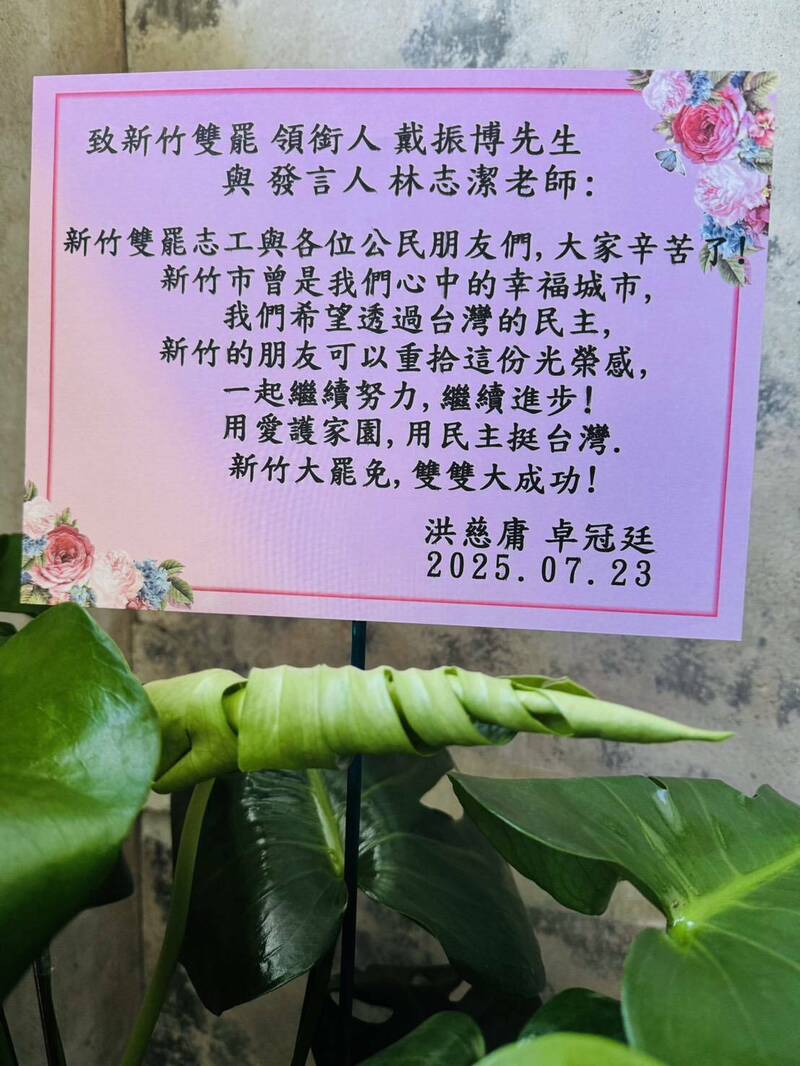 致新竹雙罷 領銜人 戴振博先生
與 發言人 林志潔老師:
新竹雙罷志工與各位公民朋友們,大家辛苦了!
新竹市曾是我們心中的幸福城市,
我們希望透過台灣的民主,
新竹的朋友可以重拾這份光榮感,
一起繼續努力,繼續進步!
用愛護家園,用民主挺台灣.
新竹大罷免,雙雙大成功!
洪慈庸 卓冠廷
2025.07.23